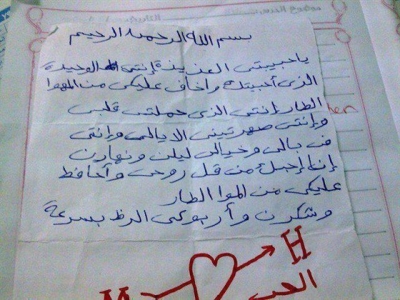 بسم الله الرحمن الرحيم
ياحبيبتي العزيذة إنتي الوحيدة
الذي أحببتك وأخاف عليكي من الهوا
الطار إنتي الذي حملتي قلبي
وإنتي صهرتيني الايالي وإنتي
في بالي وخيالي ليلن ونهارن
إنا إحبك من كل روحي وأحافظ
عليكي من الهوا الطار
وشكرن وأرجوكي الرد بسرعة
H
الحب
M